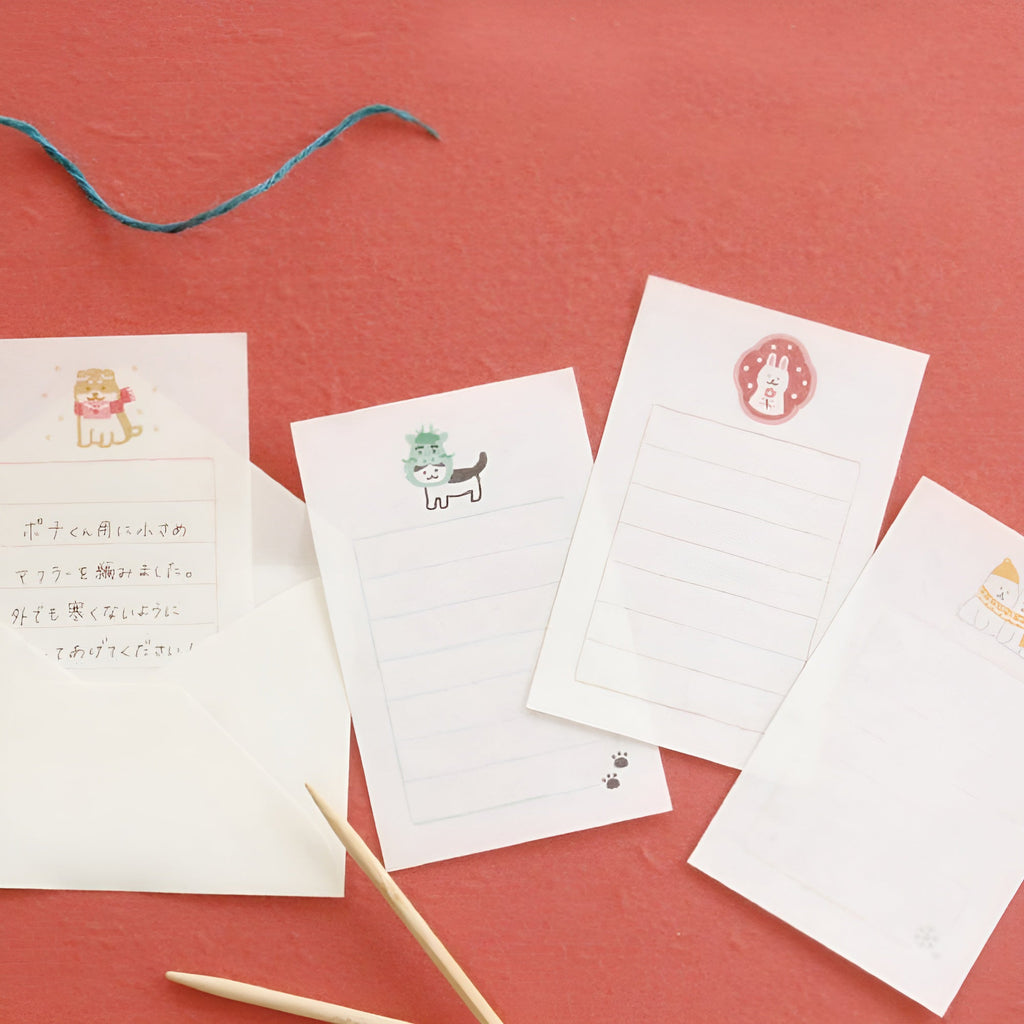 ポチくん用に小さめ
マフラーを編みました。
外でも寒くないように
てあげてください！